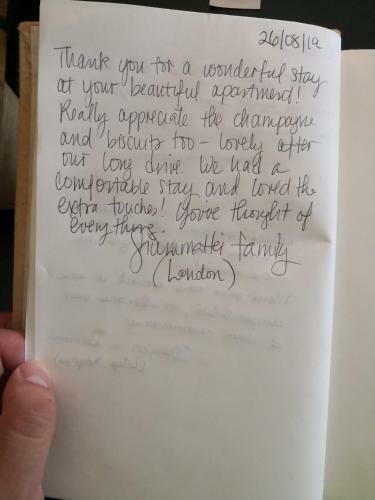 26/08/19
Thank you for a wonderful stay
at your beautiful apartment!
Really appreciate the champagne
and biscuits too - lovely after
our long drive. We had a
comfortable stay and loved the
extra touches! You've thought of
everything.
Giammattei family
(London)